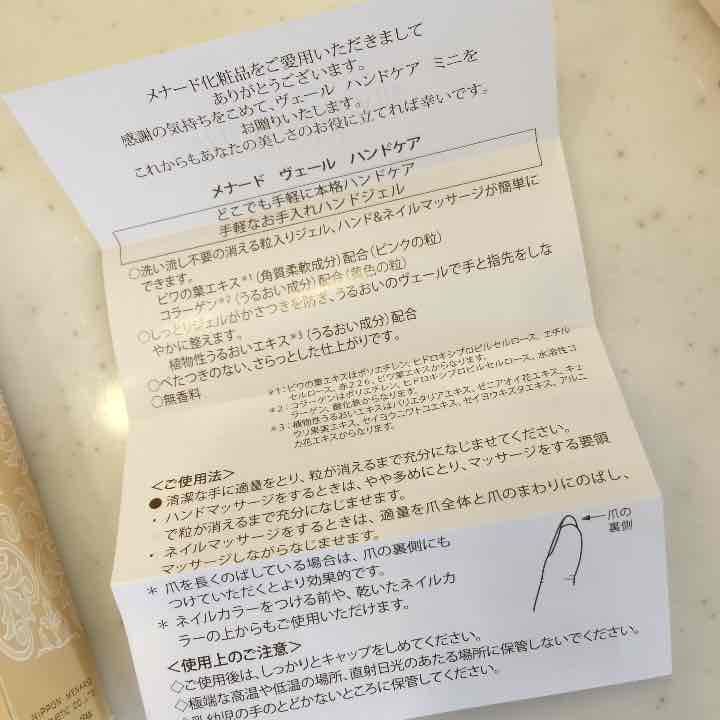 メナード化粧品をご愛用いただきまして
ありがとうございます。
感謝の気持ちをこめて、ヴェール ハンドケア ミニを
お贈りいたします。
これからもあなたの美しさのお役に立てれば幸いです。
メナード ヴェール ハンドケア
どこでも手軽に本格ハンドケア
手軽なお手入れハンドジェル
○洗い流し不要の消える粒入りジェル、ハンド&ネイルマッサージが簡単に
できます。
ビワの葉エキス*1(角質柔軟成分)配合(ピンクの粒)
コラーゲン*2(うるおい成分)配合(黄色の粒)
○しっとりジェルがかさつきを防ぎ、うるおいのヴェールで手と指先をしな
やかに整えます。
植物性うるおいエキス*3(うるおい成分)配合
○べたつきのない、さらっとした仕上がりです。
○無香料
*1:ビワの葉エキスはポリエチレン、ヒドロキシプロピルセルロース、エチル
セルロース、赤226、ビワ葉エキスからなります。
*2:コラーゲンはポリエチレン、ヒドロキシプロピルセルロース、水溶性コ
ラーゲン、酸化鉄からなります。
*3:植物性うるおいエキスはパリエタリアエキス、ゼニアオイ花エキス、キュ
ウリ果実エキス、セイヨウニワトコエキス、セイヨウキズタエキス、アルニ
カ花エキスからなります。
<ご使用法>
●清潔な手に適量をとり、粒が消えるまで充分になじませてください。
・ハンドマッサージをするときは、やや多めにとり、マッサージをする要領
で粒が消えるまで充分になじませます。
・ネイルマッサージをするときは、適量を爪全体と爪のまわりにのばし、
マッサージしながらなじませます。
*爪を長くのばしている場合は、爪の裏側にも
つけていただくとより効果的です。
*ネイルカラーをつける前や、乾いたネイルカ
ラーの上からもご使用いただけます。
爪の
裏側
<使用上のご注意>
◇ご使用後は、しっかりとキャップをしめてください。
◇極端な高温や低温の場所、直射日光のあたる場所に保管しないでください。
◇乳幼児の手のとどかないところに保管してください。
NIPPON MENARD